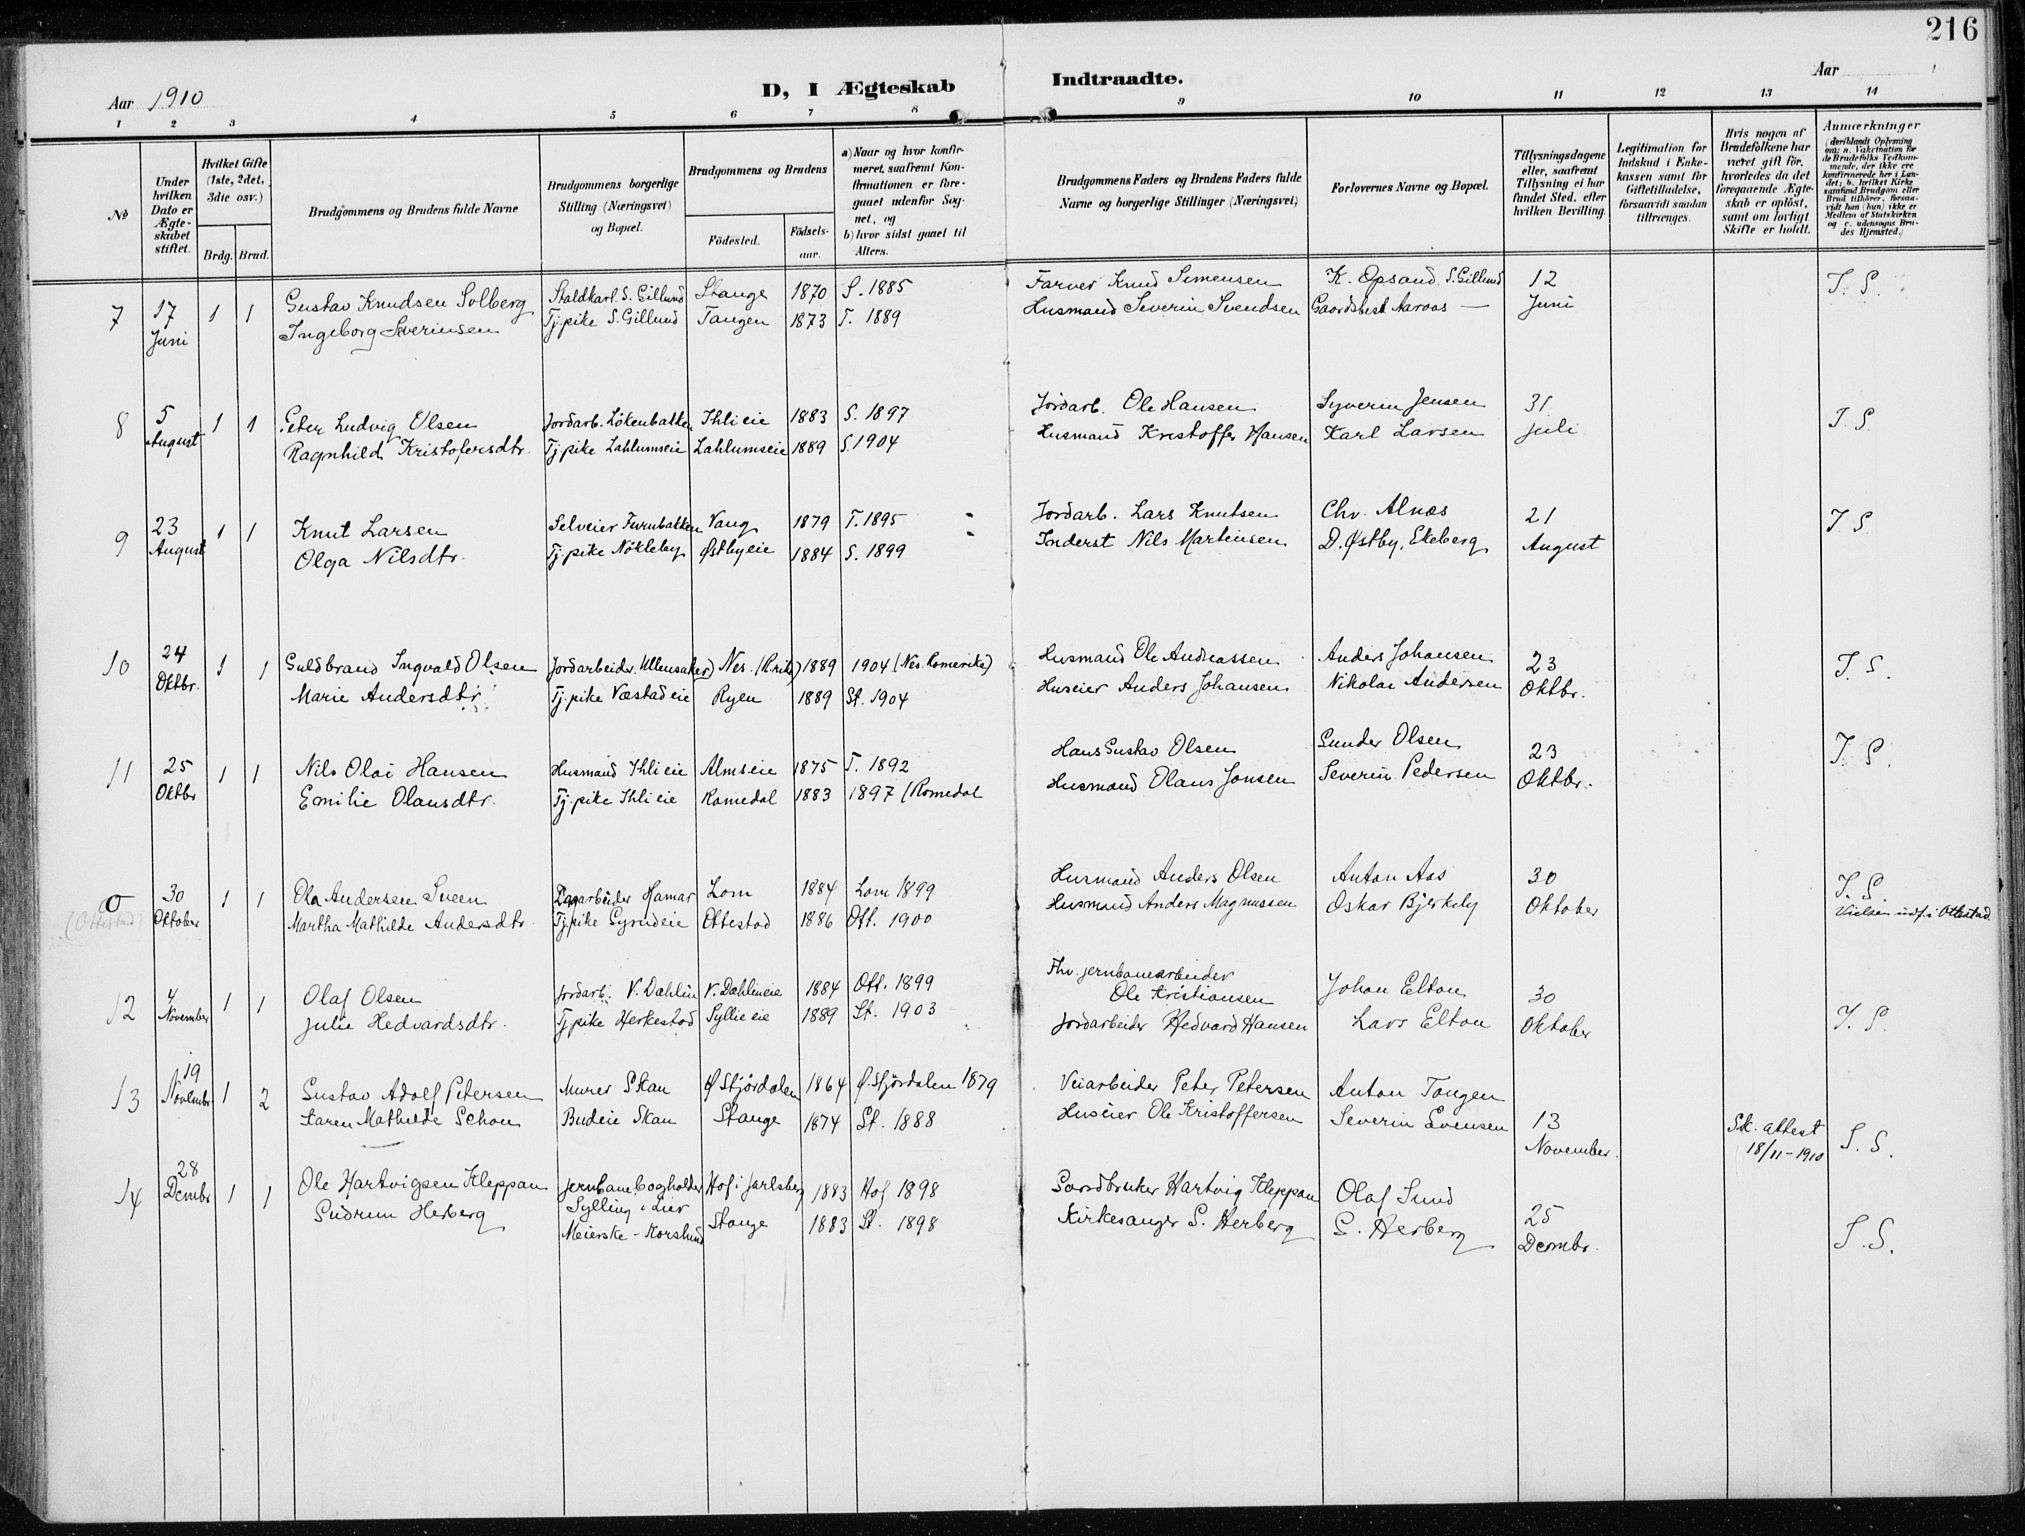 216
Aar 1910
D, I Ægteskab Indtraadte.
Aar
1 2 3 4 5 6 7 8 9 10 11 12 13 14
No
Under hvilken Dato er Ægte-skabet stiftet.
Hvilket Gifte (1ste, 2det, 3die osv.)
Brdg. Brud.
Brudgommens og Brudens fulde Navne
Brudgommens borgerlige Stilling (Næringsvei) og Bopæl.
Brudgommens og Brudens
Födested. Födsels-aar.
a) Naar og hvor konfir-meret, saafremt Kon-firmationen er fore-gaaet udenfor Sog-net, og
b) hvor sidst gaaet til Alters.
Brudgommens Faders og Brudens Faders fulde Navne og borgerlige Stillinger (Næringsvei)
Forlovernes Navne og Bopæl.
Tillysningsdagene eller, saafremt Tillysning ei har fundet Sted, efter hvilken Bevilling.
Legitimation for Indskud i Enke-kassen samt for Giftetilladelse, forsaavidt saadan tiltrænges.
Hvis nogen af Brudefolkene har været gift för, hvorledes da det foregaaende Ægte-skab er oplöst, samt om lovligt Skifte er holdt.
Anmærkninger (deriblandt Oplysning om: a. Vakcination for de Brudefolks Vedkom-mende, der ikke ere konfirmerede her i Lan-det; b. hvilket Kirke-samfund Brudgom eller Brud tilhörer, forsaa-vidt han (hun) ikke er Medlem af Statskirken og c. udensogns Bru-des Hjemsted.)
7 17 Juni 1 1 Gustav Knudsen Solberg Staldkarl. S. Gillund Stange 1870 S. 1885 Farver Knud Simensen K. Opsand. S. Gillund 12 Juni T. S.
Ingeborg Severinsen Tj. pike S. Gillund Tangen 1873 T. 1889 Husmand Severin Svendsen Gaardsbest. Aaroos —
8 5 August 1 1 Peter Ludvig Olsen Jordarb. Lökenbakken Ihlieie 1883 S. 1897 Jordarb. Ole Hansen Syverin Jensen 31 Juli T. S.
Ragnhild Kristofersdtr. Tj. pike Lahlumseie Lahlumseie 1889 S. 1904 Husmand Kristoffer Hansen Karl Larsen
9 23 August 1 1 Knut Larsen Selveier Furubakken Vang 1879 T. 1895 Jordarb. Lars Knutsen Chr. Alnæs 21 August T. S.
Olga Nilsdtr. Tj. pike Nökleby Østbyeie 1884 S. 1899 Inderst Nils Martinsen D. Østby, Ekeberg
10 24 Oktbr. 1 1 Guldbrand Ingvald Olsen Jordarbeider. Ullensaker Nes. (Rmk.) 1889 1904 (Nes. Romerike) Husmand Ole Andreassen Anders Johansen 23 Oktbr. T. S.
Marie Andersdtr. Tj. pike Væstadeie Ryen 1889 St. 1904 Huseier Anders Johansen Nikolai Andersen
11 25 Oktbr 1 1 Nils Olai Hansen Husmand Ihlieie Almseie 1875 T. 1892 Hans Gustav Olsen Gunder Olsen 23 Oktbr. T. S.
Emilie Olausdtr. Tj. pike Ihlieie Romedal 1883 1897 (Romedal Husmand Olaus Jonsen Severin Pedersen
0 (Ottestad) 30 Oktober 1 1 Ola Andersen Sveen Dagarbeider Hamar Lom 1884 Lom 1899 Husmand Anders Olsen Anton Aas 30 Oktober T. S.
Martha Mathilde Andersdtr. Tj. pike Gyrudeie Ottestad 1886 Ott. 1900 Husmand Anders Magnussen Oskar Bjerkely Vielsen indf. i Ottestad.
12 4 November 1 1 Olaf Olsen Jordarb. V. Dahlin V. Dahlineie 1884 Ott. 1899 Fhv. jernbanearbeider Ole Kristiansen Johan Elton 30 Oktober T. S.
Julie Hedvardsdtr. Tj. pike Herkestad Syllieeie 1889 St. 1903 Jordarbeider Hedvard Hansen Lars Elton
13 19 Novembr 1 2 Gustav Adolf Petersen Murer Skau Ø. Stjördalen 1864 Ø. Stjördalen 1879 Veiarbeider Peter Petersen Anton Tangen 13 November. Sk. attest 18/11-1910 S. S.
Karen Mathilde Schou Budeie Skau Stange 1874 St. 1888 Huseier Ole Kristoffersen Severin Evensen
14 28 Decmbr 1 1 Ole Hartvigsen Kleppan Jernbane bogholder Sylling i Lier Hof i Jarlsberg 1883 Hof 1898 Gaardbruker Hartvig Kleppan Olaf Sund 25 Decmbr. S. S.
Gudrun Herberg Meierske - Korslund Stange 1883 St. 1898 Kirkesanger S. Herberg S. Herberg